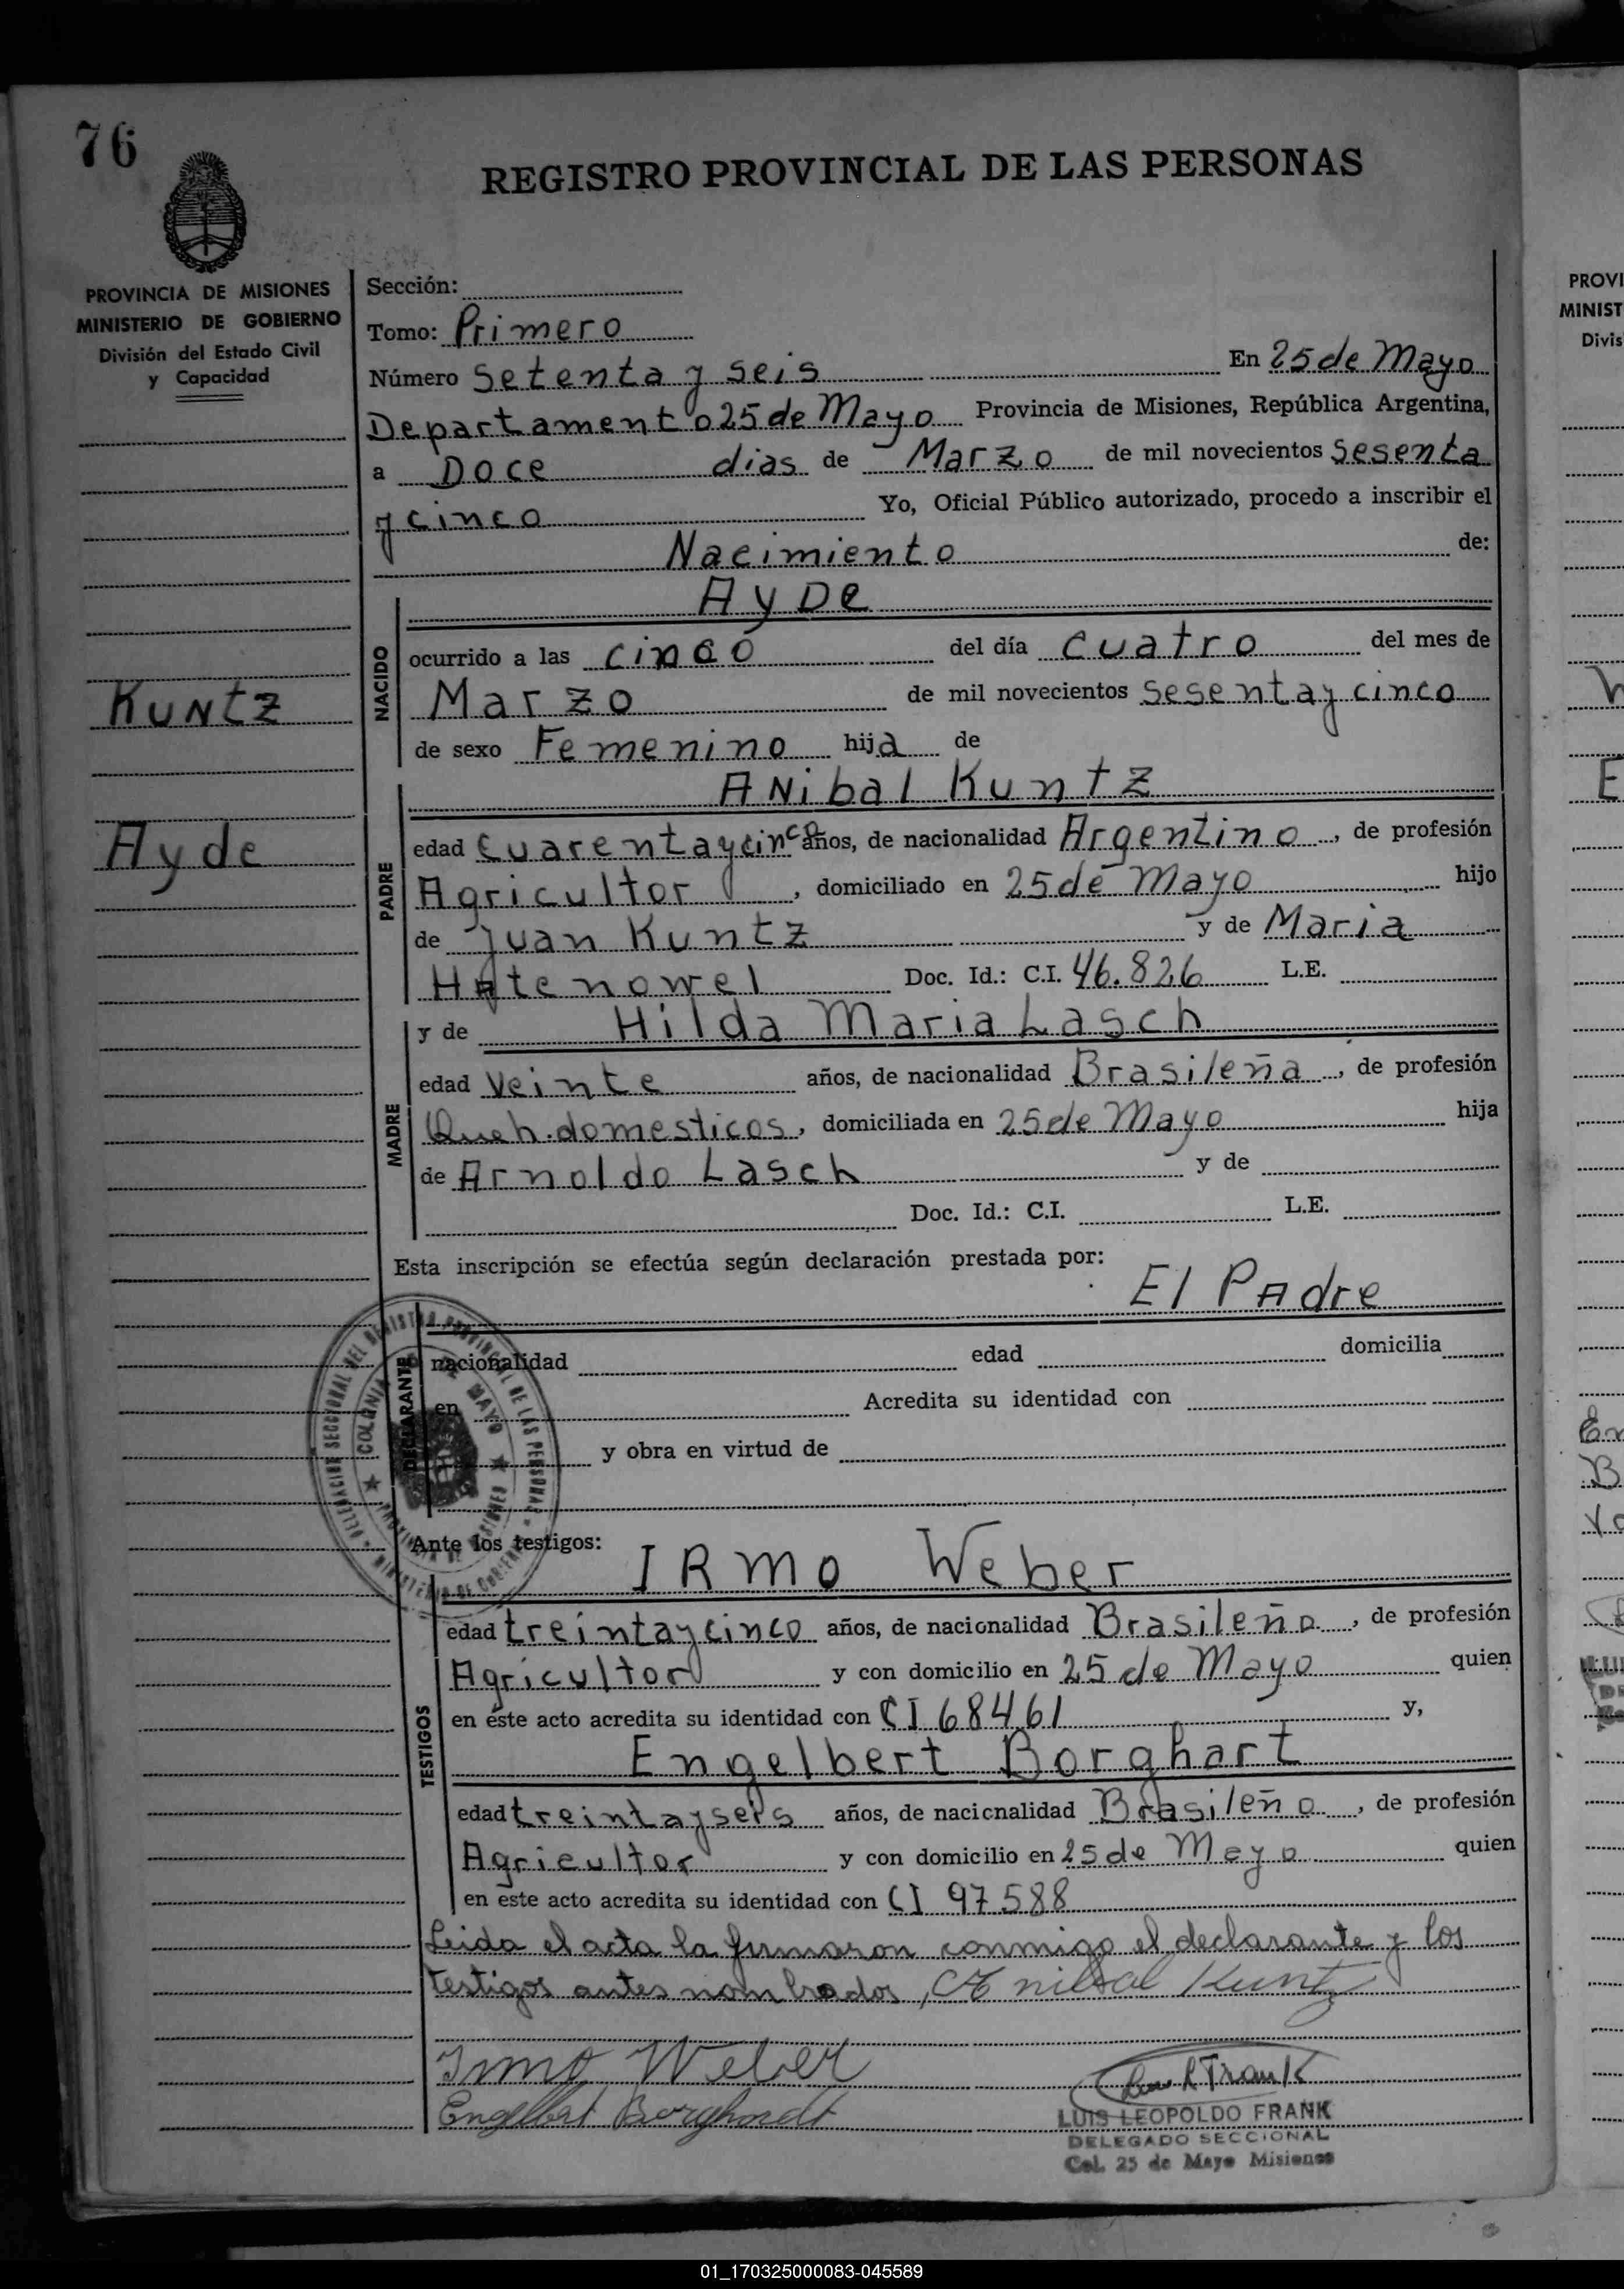 76
REGISTRO PROVINCIAL DE LAS PERSONAS
PROVINCIA DE MISIONES
MINISTERIO DE GOBIERNO
División del Estado Civil
y Capacidad
Kuntz
Ayde
Sección:
Tomo: Primero
Número Setenta y seis En 25 de Mayo
Departamento 25 de Mayo Provincia de Misiones, República Argentina,
a Doce dias de Marzo de mil novecientos Sesenta
y cinco Yo, Oficial Público autorizado, procedo a inscribir el
Nacimiento de:
NACIDO
Ayde
ocurrido a las cinco del día cuatro del mes de
Marzo de mil novecientos sesenta y cinco
de sexo Femenino hija de
PADRE
Anibal Kuntz
edad cuarenta y cinco años, de nacionalidad Argentino, de profesión
Agricultor, domiciliado en 25 de Mayo hijo
de Juan Kuntz y de Maria
Hatenowel Doc. Id.: C.I. 46.826 L.E.
MADRE
y de Hilda Maria Lasch
edad Veinte años, de nacionalidad Brasileña, de profesión
Queh. domesticos, domiciliada en 25 de Mayo hija
de Arnoldo Lasch y de
Doc. Id.: C.I. L.E.
Esta inscripción se efectúa según declaración prestada por:
El Padre
DECLARANTE
nacionalidad edad domicilia
en Acredita su identidad con
y obra en virtud de
Ante los testigos:
TESTIGOS
IRMO Weber
edad treinta y cinco años, de nacionalidad Brasileño, de profesión
Agricultor y con domicilio en 25 de Mayo quien
en este acto acredita su identidad con CI 68461 y,
Engelbert Borghart
edad treinta y seis años, de nacionalidad Brasileño, de profesión
Agricultor y con domicilio en 25 de Mayo quien
en este acto acredita su identidad con CI 97588
Leida el acta la firmaron conmigo el declarante y los
testigos antes nombrados, Anibal Kuntz
Irmo Weber
Engelbert Borghardt
LUIS LEOPOLDO FRANK
DELEGADO SECCIONAL
Col. 25 de Mayo Misiones
01_170325000083-045589